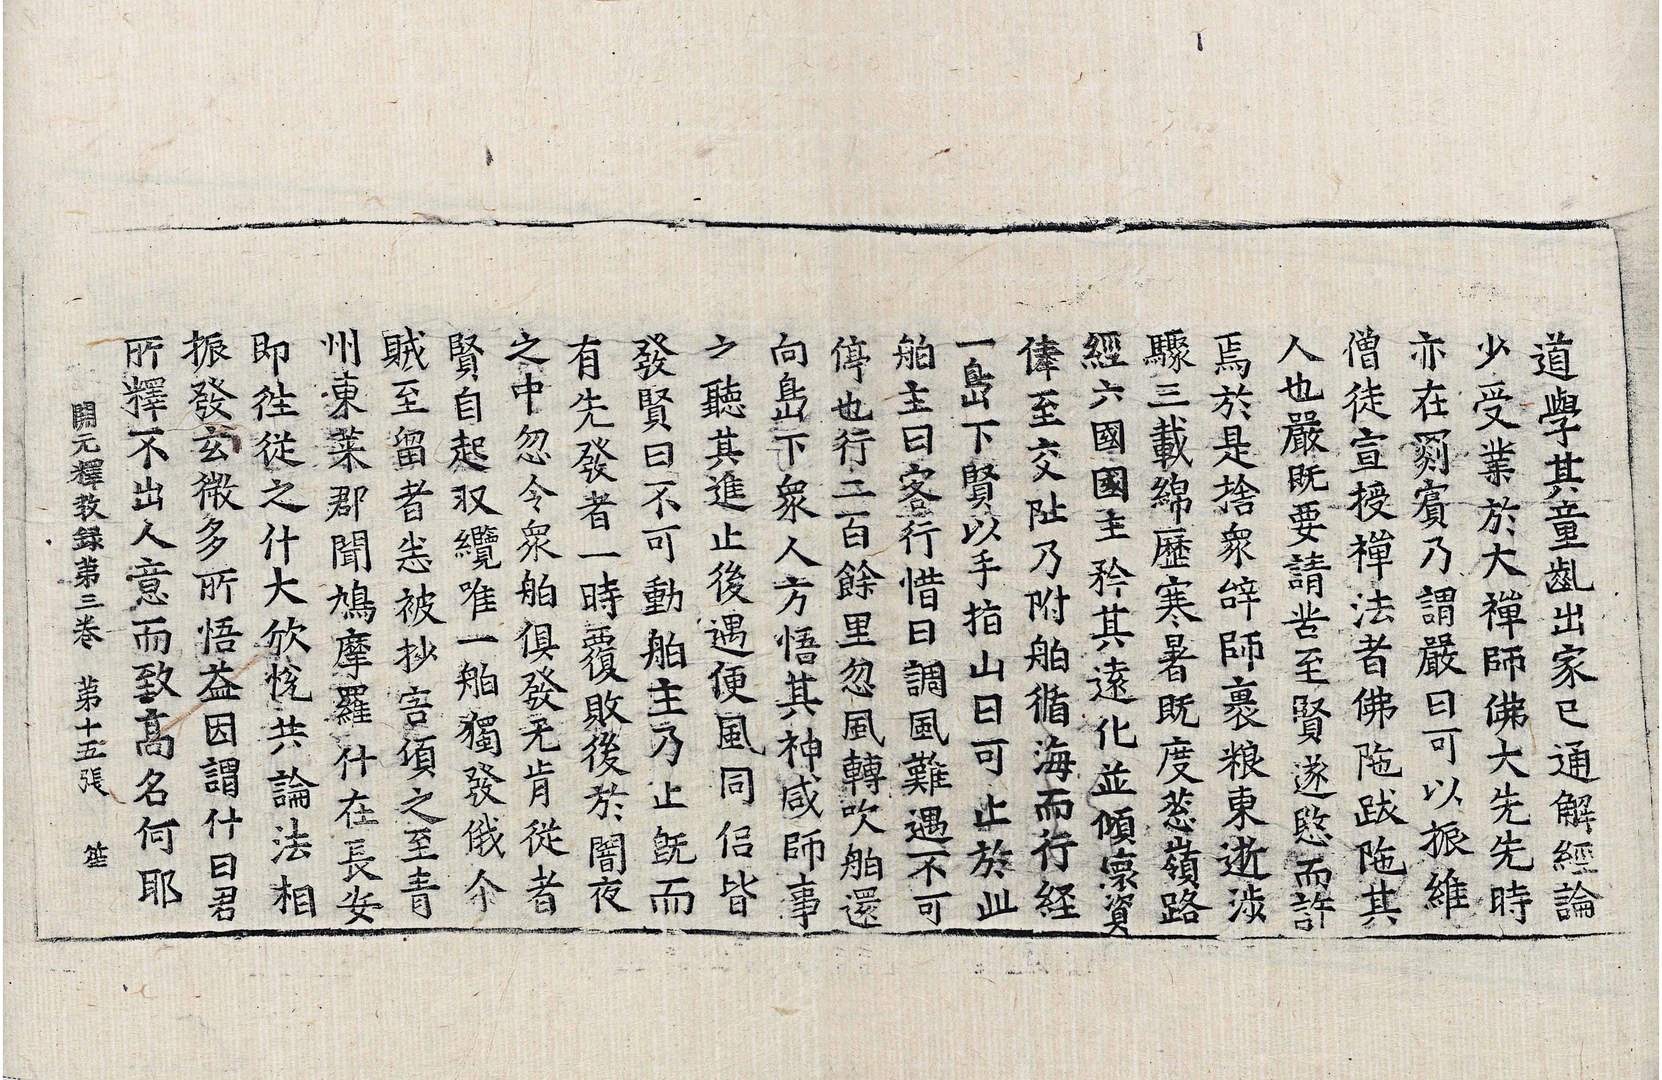 道學其童齓出家已通解經論
少受業於大禪師佛大先先時
亦在罽賓乃謂嚴曰可以振維
僧徒宣授禪法者佛陁跋陁其
人也嚴既要請苦至賢遂愍而許
焉於是捨衆辝師裹粮東逝涉
驟三載綿歷寒暑既度葱嶺路
經六國國主矜其遠化並傾懷資
俸至交阯乃附舶循海而行経
一島下賢以手指山曰可止於此
舶主曰客行惜日調風難遇不可
停也行二百餘里忽風轉吹舶還
向島下衆人方悟其神咸師事
之聽其進止後遇便風同侣皆
發賢曰不可動舶主乃止既而
有先發者一時覆敗後於闇夜
之中忽令衆舶俱發无肯從者
賢自起収纜唯一舶獨發俄尒
賊至留者悉被抄害頃之至青
州東萊郡聞鳩摩羅什在長安
即往從之什大欣恱共論法相
振發玄微多所悟益因謂什曰君
所釋不出人意而致髙名何耶
開元釋教録第三卷 第十五張 笙